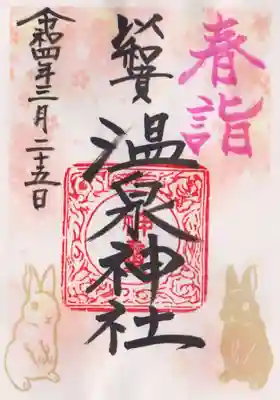 春詣
温泉神社
令和四年三月二十五日